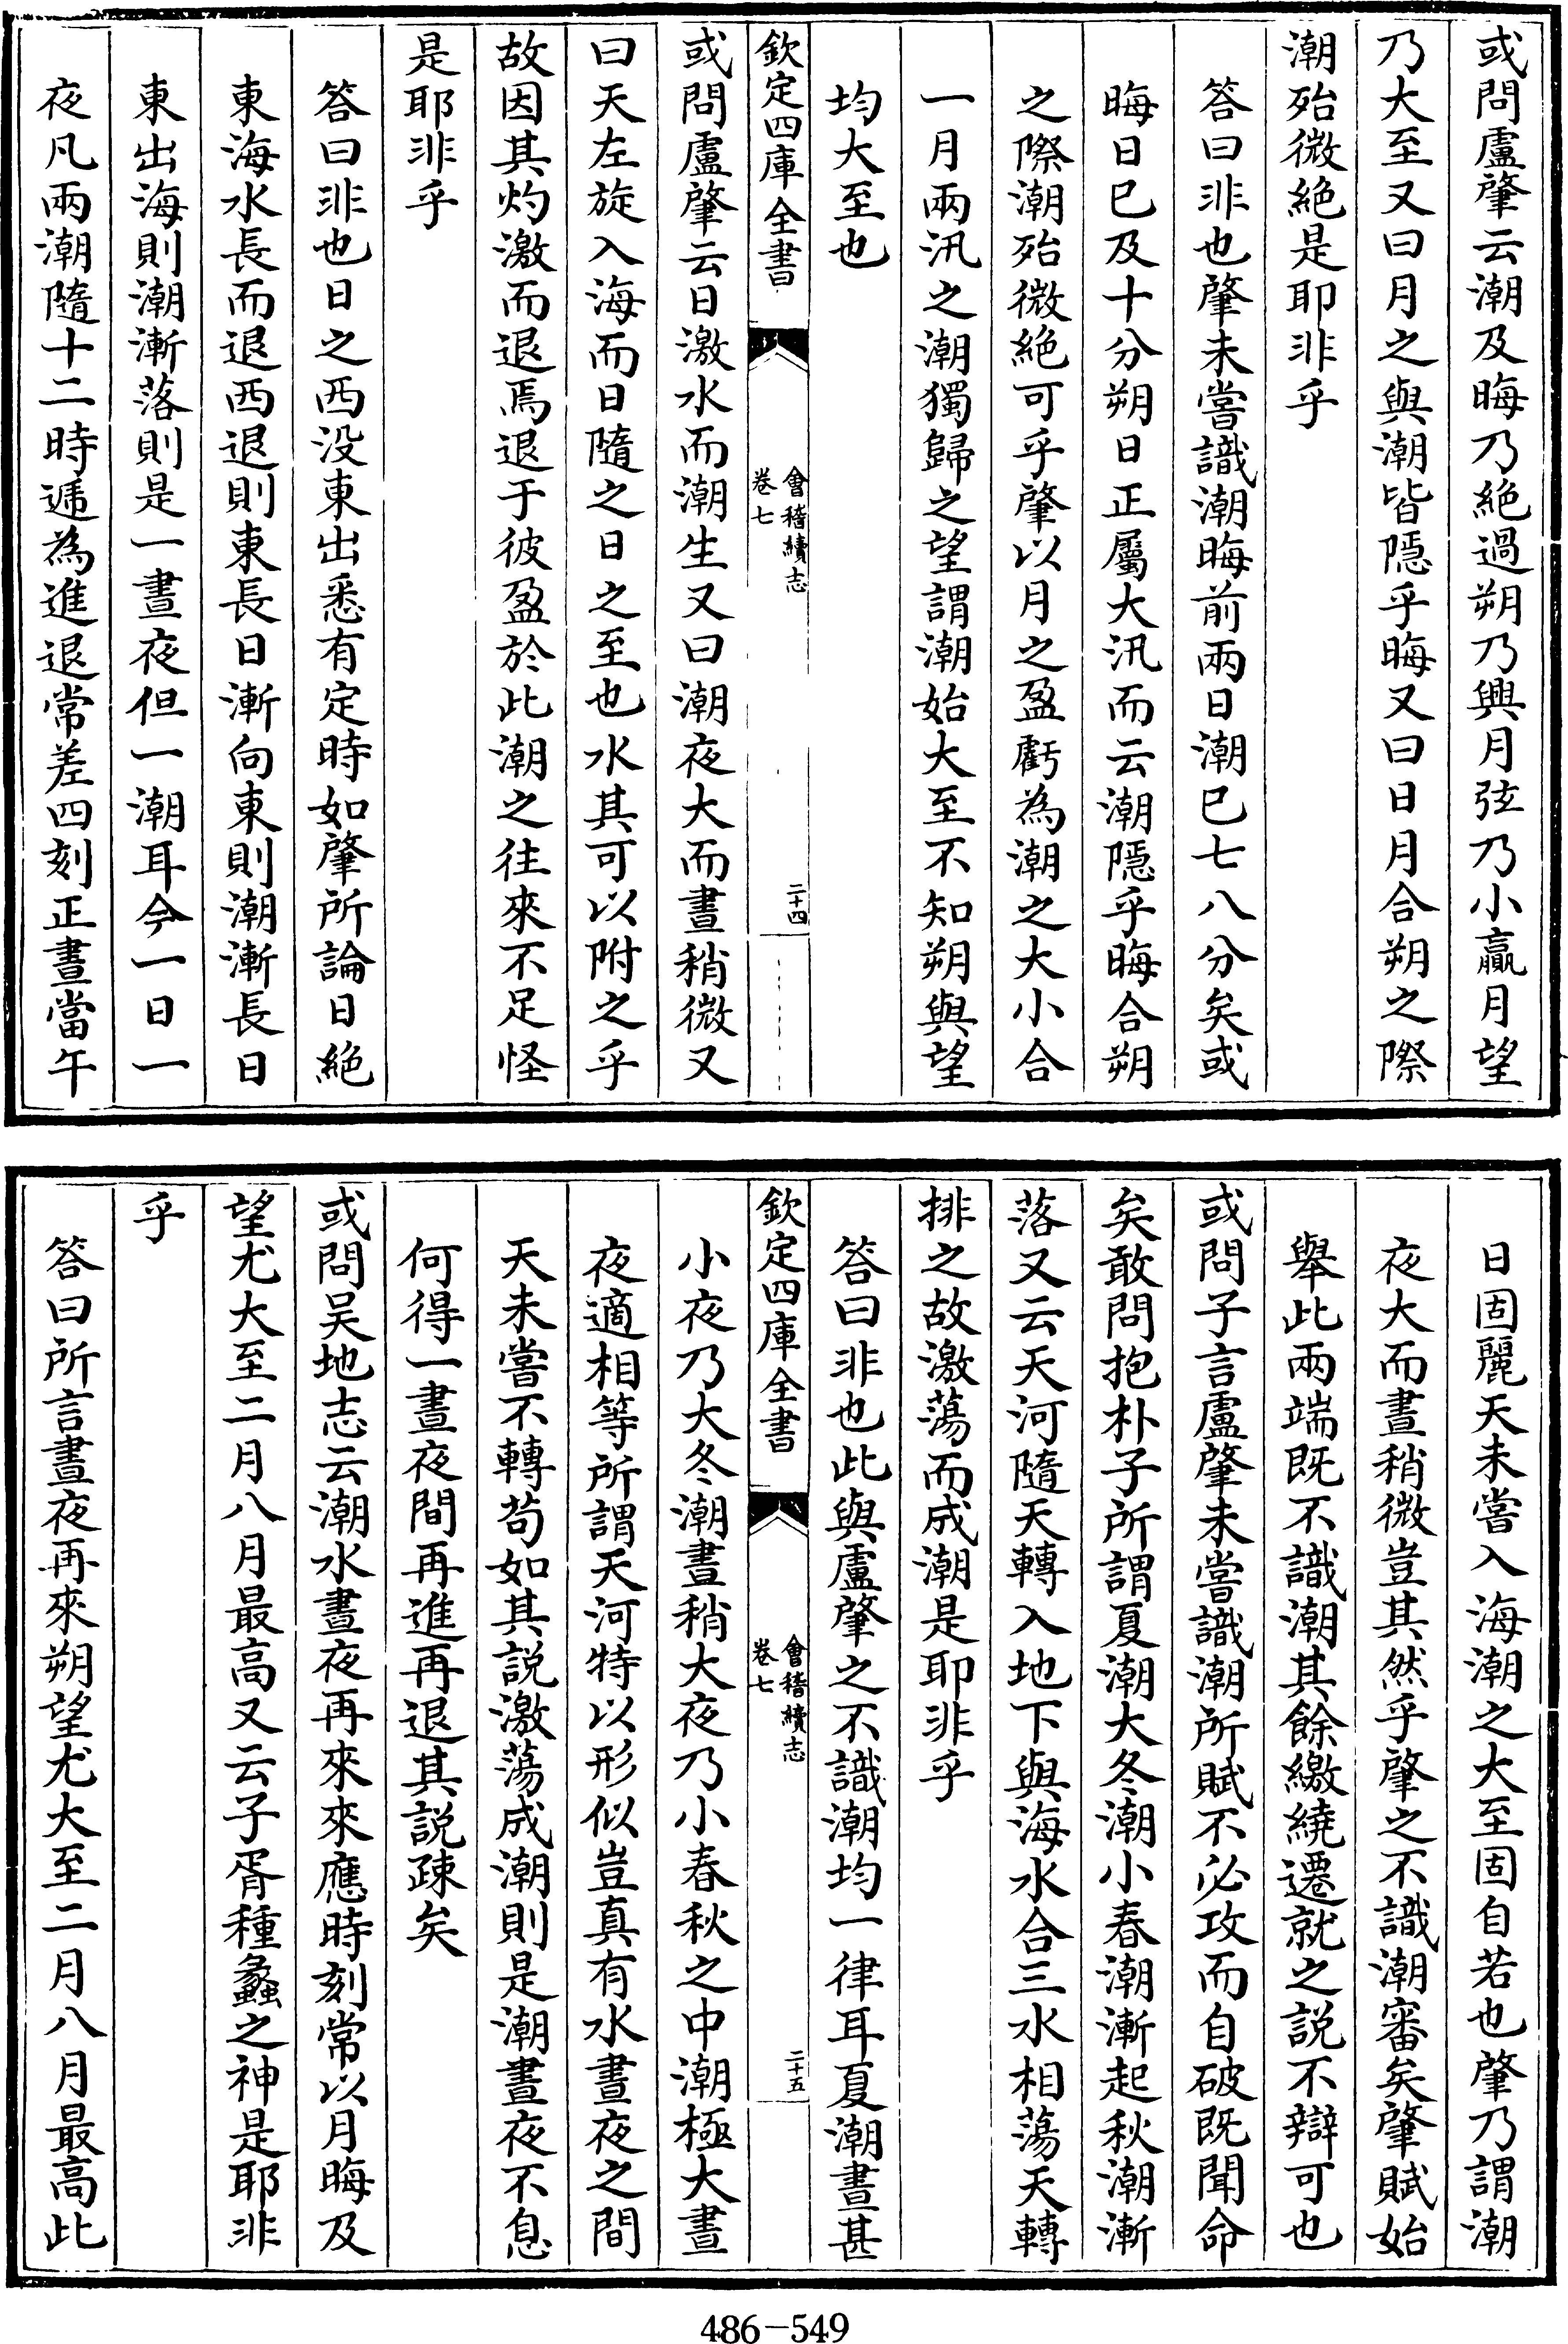 或問盧肇云潮及晦乃絶過朔乃興月弦乃小贏月望
乃大至又曰月之與潮皆隠乎晦又曰日月合朔之際
潮殆微絶是耶非乎
答曰非也肇未嘗識潮晦前兩日潮已七八分矣或
晦日已及十分朔日正屬大汛而云潮隠乎晦合朔
之際潮殆微絶可乎肇以月之盈虧為潮之大小合
一月兩汛之潮獨歸之望謂潮始大至不知朔與望
均大至也
欽定四庫全書
會稽續志
卷七
二十四
或問盧肇云日激水而潮生又曰潮夜大而晝稍微又
曰天左旋入海而日隨之日之至也水其可以附之乎
故因其灼激而退焉退于彼盈於此潮之往來不足怪
是耶非乎
答曰非也日之西没東出悉有定時如肇所論日絶
東海水長而退西退則東長日漸向東則潮漸長日
東出海則潮漸落則是一晝夜但一潮耳今一日一
夜凡兩潮隨十二時遞為進退常差四刻正晝當午
日固麗天未嘗入海潮之大至固自若也肇乃謂潮
夜大而晝稍微豈其然乎肇之不識潮審矣肇賦始
舉此兩端既不識潮其餘繳繞遷就之説不辯可也
或問子言盧肇未嘗識潮所賦不必攻而自破既聞命
矣敢問抱朴子所謂夏潮大冬潮小春潮漸起秋潮漸
落又云天河隨天轉入地下與海水合三水相蕩天轉
排之故激蕩而成潮是耶非乎
答曰非也此與盧肇之不識潮均一律耳夏潮晝甚
欽定四庫全書
會稽續志
卷七
二十五
小夜乃大冬潮晝稍大夜乃小春秋之中潮極大晝
夜適相等所謂天河特以形似豈真有水晝夜之間
天未嘗不轉苟如其説激蕩成潮則是潮晝夜不息
何得一晝夜間再進再退其説疎矣
或問吴地志云潮水晝夜再來來應時刻常以月晦及
望尤大至二月八月最高又云子胥種蠡之神是耶非
乎
答曰所言晝夜再來朔望尤大至二月八月最高此
486-549